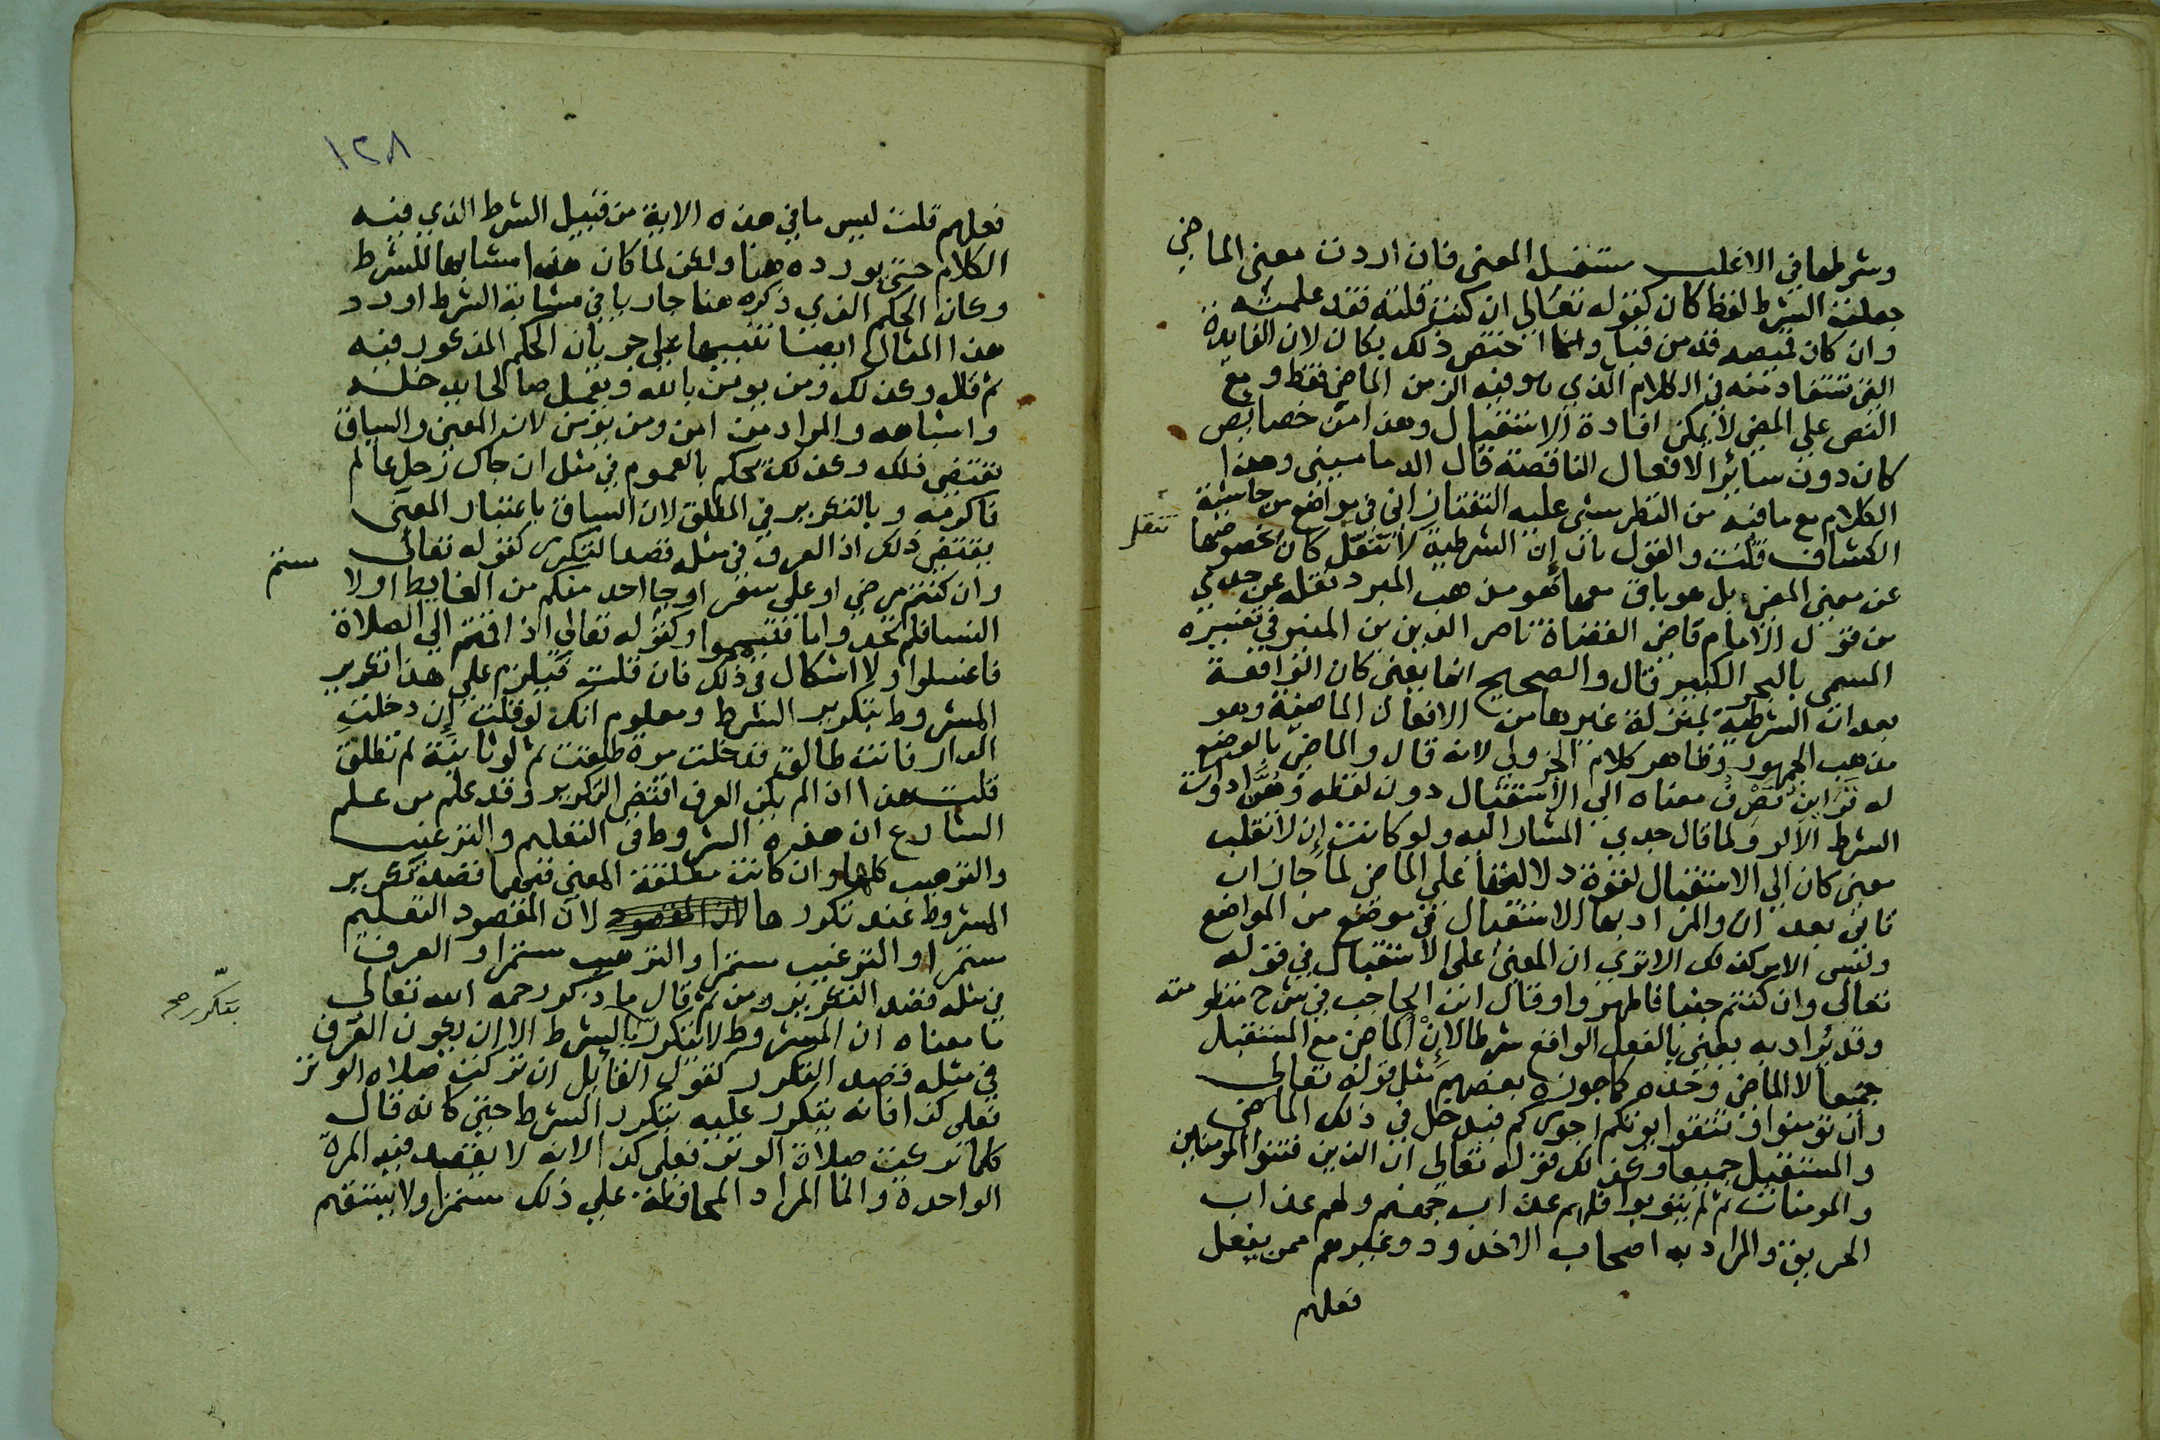 وشرطها في الاغلب مستقبل المعنى فان اردت معنى الماضي
جعلت الشرط لفظ كان كقوله تعالى ان كنت قلته فقد علمته
وان كان قميصه قد من قبل وانما اختص ذلك بكان لان الفايدة
التي تستفاد منه في الكلام الذي هو فيه الزمن الماضي فقط ومع
النص على المضي لا يمكن افادة الاستقبال وهذا من خصايص
كان دون سائر الافعال الناقصة قال الدماميني وهذا
الكلام مع ما فيه من النظر مشى عليه التفتازاني في مواضع من حاشية
الكشاف قلت والقول بان إن الشرطية لا تنقل كان بخصوصها
تنقل
عن معنى المضي بل هو باق معها هو مذهب المبرد نقله عن جدي
من قول الامام قاضي القضاة ناصر الدين بن المنير في تفسيره
المسمى بالبحر الكبير قال والصحيح انها يعني كان الواقعة
بعد ان الشرطية بمنزلة غيرها من الافعال الماضية وهو
مذهب الجمهور وظاهر كلام الجزولي لانه قال والماضي بالوضع
له قراين تصرف معناه الى الاستقبال دون لفظه وهي ادوات
الشرط الا لو ولما قال جدي المشار اليه ولو كانت إن لا تقلب
معنى كان الى الاستقبال لقوة دلالتها على الماضي لما جاز ان
تاتي بعد ان والمراد بها الاستقبال في موضع من المواضع
وليس الامر كذلك الا ترى ان المعنى على الاستقبال في قوله
تعالى وان كنتم جنبا فاطهروا وقال ابن الحاجب في شرح منظومته
وقد يراد به يعني بالفعل الواقع شرطا لإن الماضي مع المستقبل
جميعا لا الماضي وحده كما جوزه بعضهم مثل قوله تعالى
وان تومنوا وتتقوا يوتكم اجوركم فيدخل في ذلك الماضي
والمستقبل جميعا وكذلك قوله تعالى ان الذين فتنوا المومنين
والمومنات ثم لم يتوبوا فلهم عذاب جهنم ولهم عذاب
الحريق والمراد به اصحاب الاخدود وغيرهم ممن يفعل
فعلهم
١٢٨
فعلهم قلت ليس ما في هذه الاية من قبيل الشرط الذي فيه
الكلام حتى يورده هنا ولكن لما كان هذا مشابها للشرط
وكان الحكم الذي ذكره هنا جاريا في مشابه الشرط اورد
هذا المثال ايضا تنبيها على جريان الحكم المذكور فيه
ثم قال وكذلك ومن يومن بالله ويعمل صالحا يدخله
واشباهه والمراد من امن ومن يومن لان المعنى والسياق
يقتضي ذلك وكذلك يحكم بالعموم في مثل ان جاك رجل عالم
فاكرمه وبالتكرير في المطلق لان السياق باعتبار المعنى
يقتضي ذلك اذ العرف في مثله قصد التكرر كقوله تعالى
وان كنتم مرضى او على سفر او جا احد منكم من الغايط او لا
مستم
النسا فلم تجدوا ما فتيمموا وكقوله تعالى اذا قمتم الى الصلاة
فاغسلوا ولا اشكال في ذلك فان قلت فيلزم على هذا تكرير
المشروط بتكرير الشرط ومعلوم انك لو قلت إن دخلت
الدار فانت طالق فدخلت مرة طلقت ثم لو ثانية لم تطلق
قلت هذا اذا لم يكن العرف اقتضى التكرير وقد علم من علم
الشارع ان هذه الشروط في التعليم والترغيب
والترهيب كلها وان كانت مطلقة المعنى فيها قصد تكرير
المشروط عند تكررها لان المقصود التعليم
مستمرا والترغيب مستمرا والترهيب مستمرا والعرف
في مثله قصد التكرير ومن ثم قال ما ذكر رحمه الله تعالى
ما معناه ان المشروط لا يتكرر بالشرط الا ان يكون العرف
بتكرر صح
في مثله قصد التكرر كقول القائل ان تركت صلاه الوتر
فعلي كذا فانه يتكرر عليه بتكرر الشرط حتى كانه قال
كلما تركت صلاة الوتر فعلي كذا لانه لا يقصد فيه المرة
الواحدة وانما المراد المحافظة على ذلك مستمرا ولا يستقيم